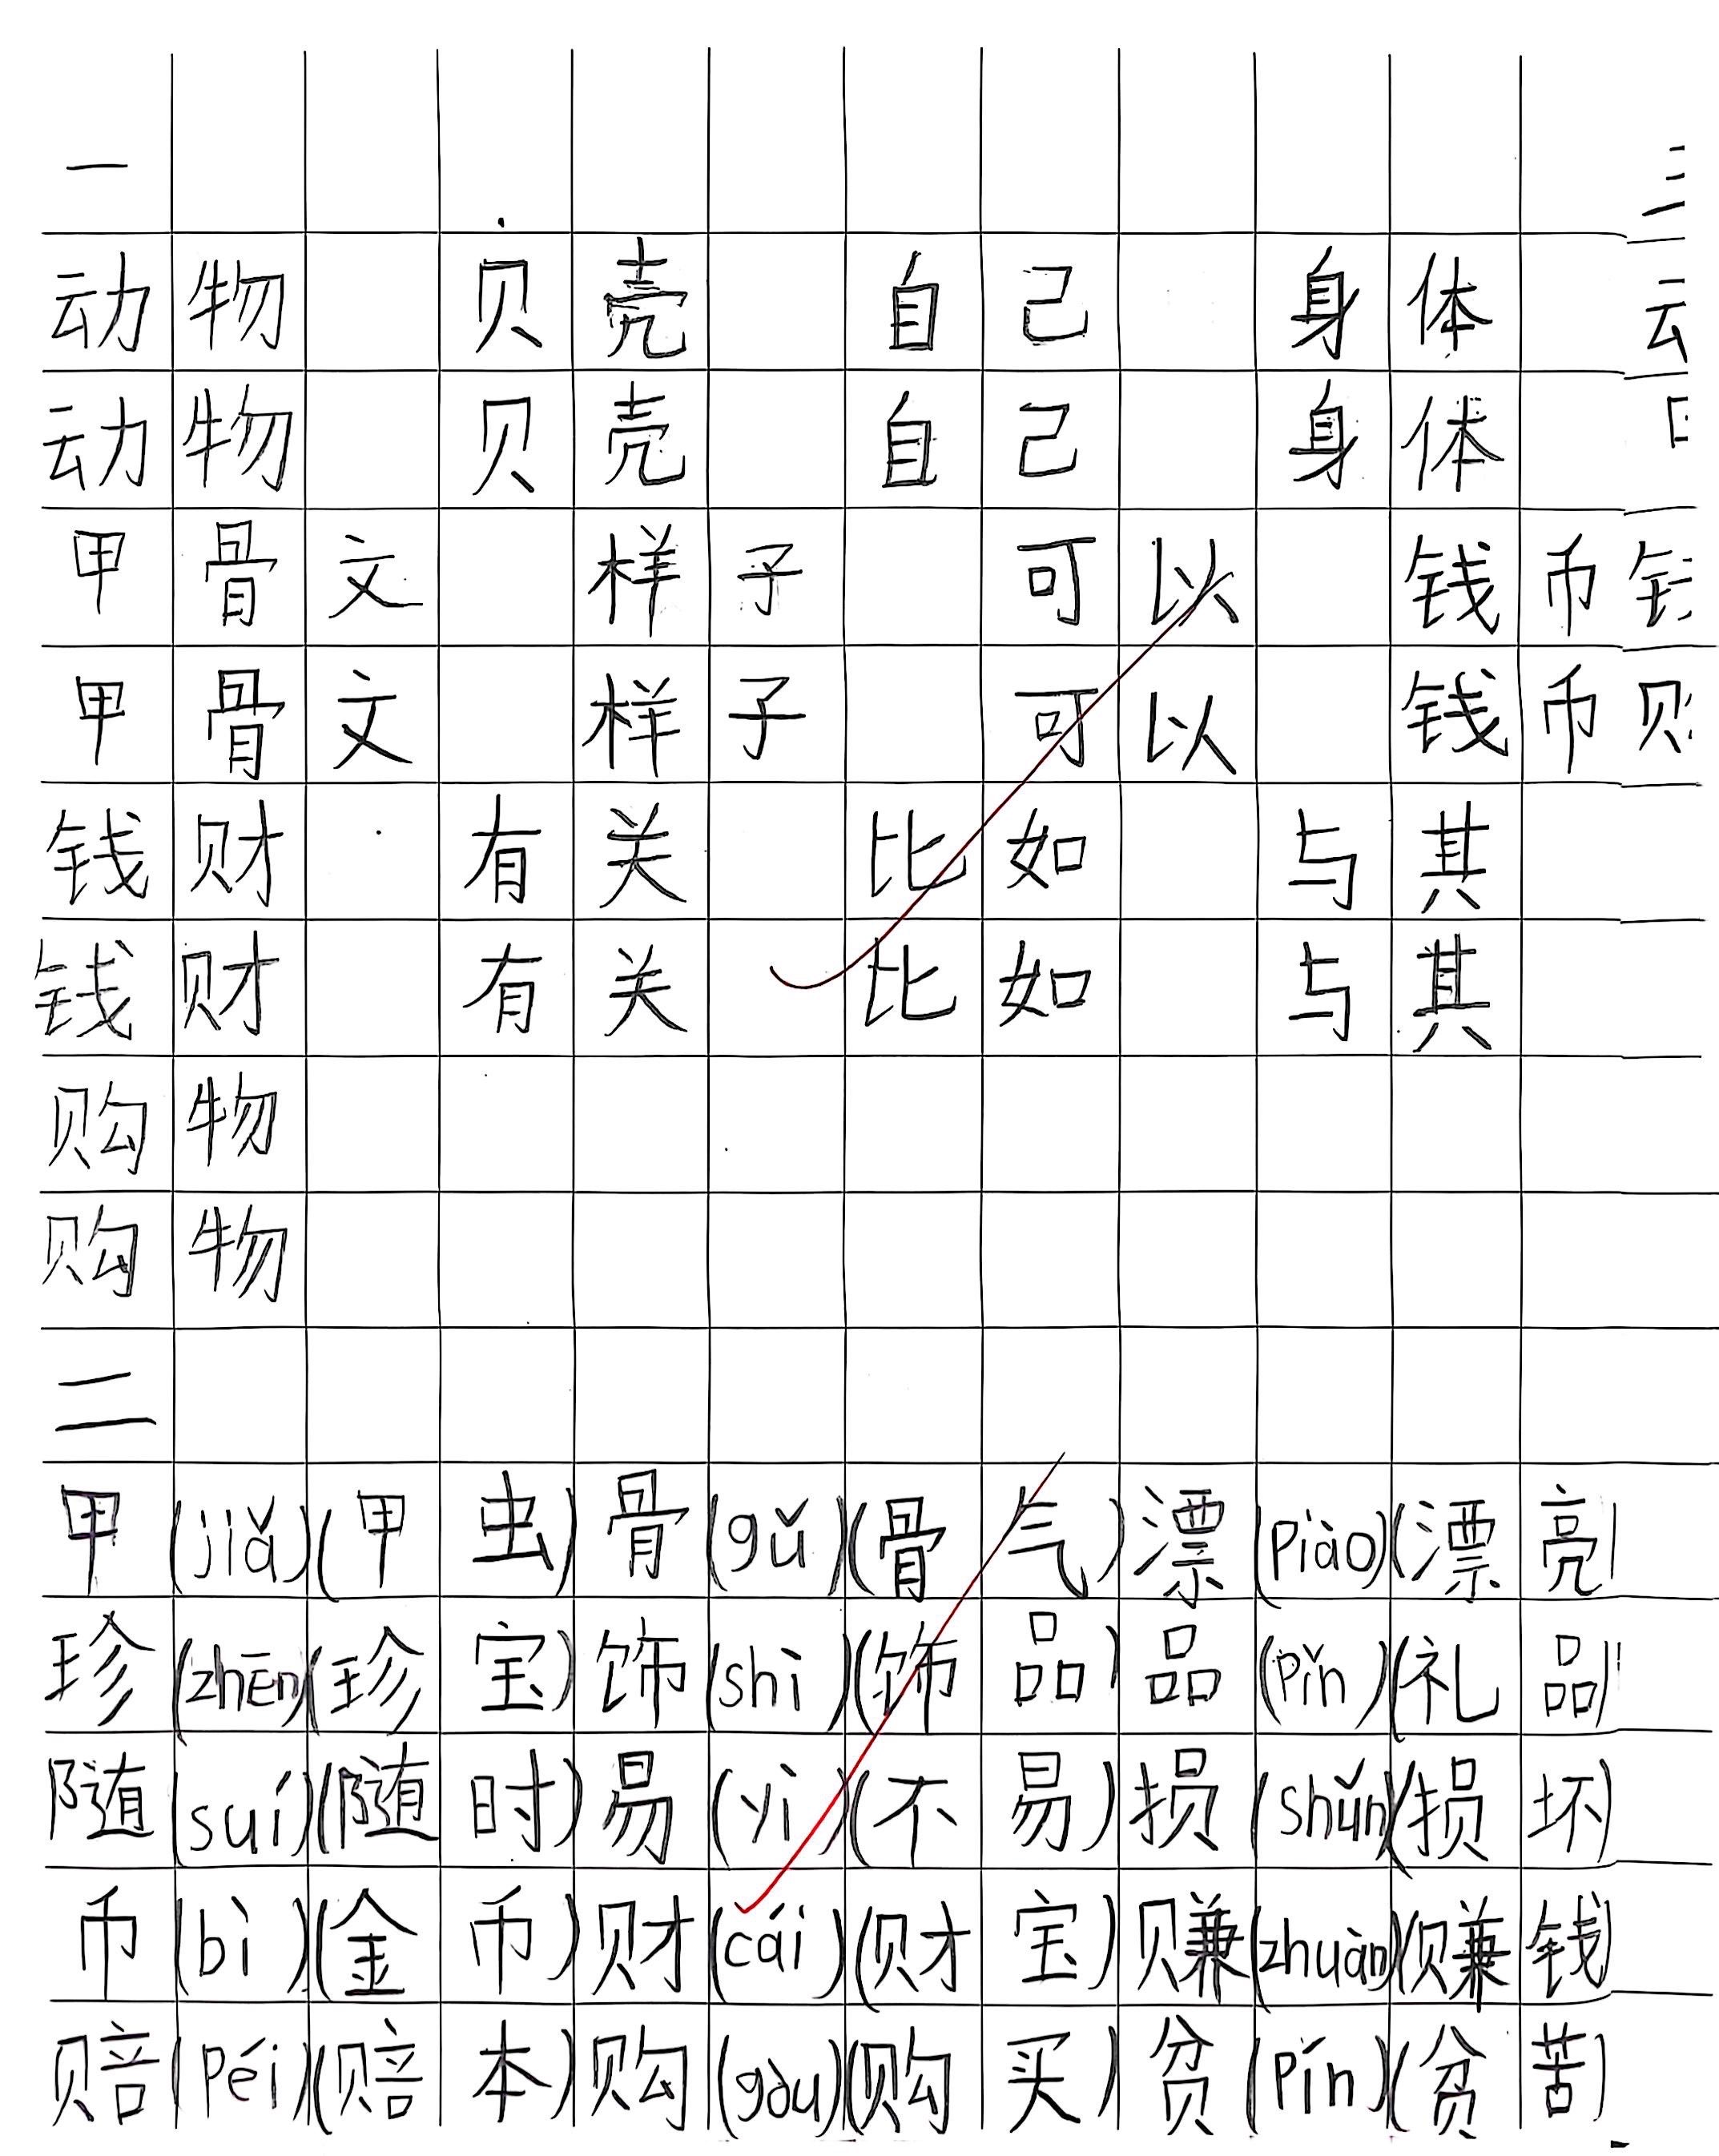 一
动物 贝壳 自己 身体
动物 贝壳 自己 身体
甲骨文 样子 可以 钱币
甲骨文 样子 可以 钱币
钱财 有关 比如 与其
钱财 有关 比如 与其
购物
购物
二
甲(jiǎ)(甲虫)骨(gǔ)(骨气)漂(piào)(漂亮)
珍(zhēn)(珍宝)饰(shì)(饰品)品(pǐn)(礼品)
随(suí)(随时)易(yì)(不易)损(shǔn)(损坏)
币(bì)(金币)财(cái)(财宝)赚(zhuàn)(赚钱)
赔(péi)(赔本)购(gòu)(购买)贫(pín)(贫苦)